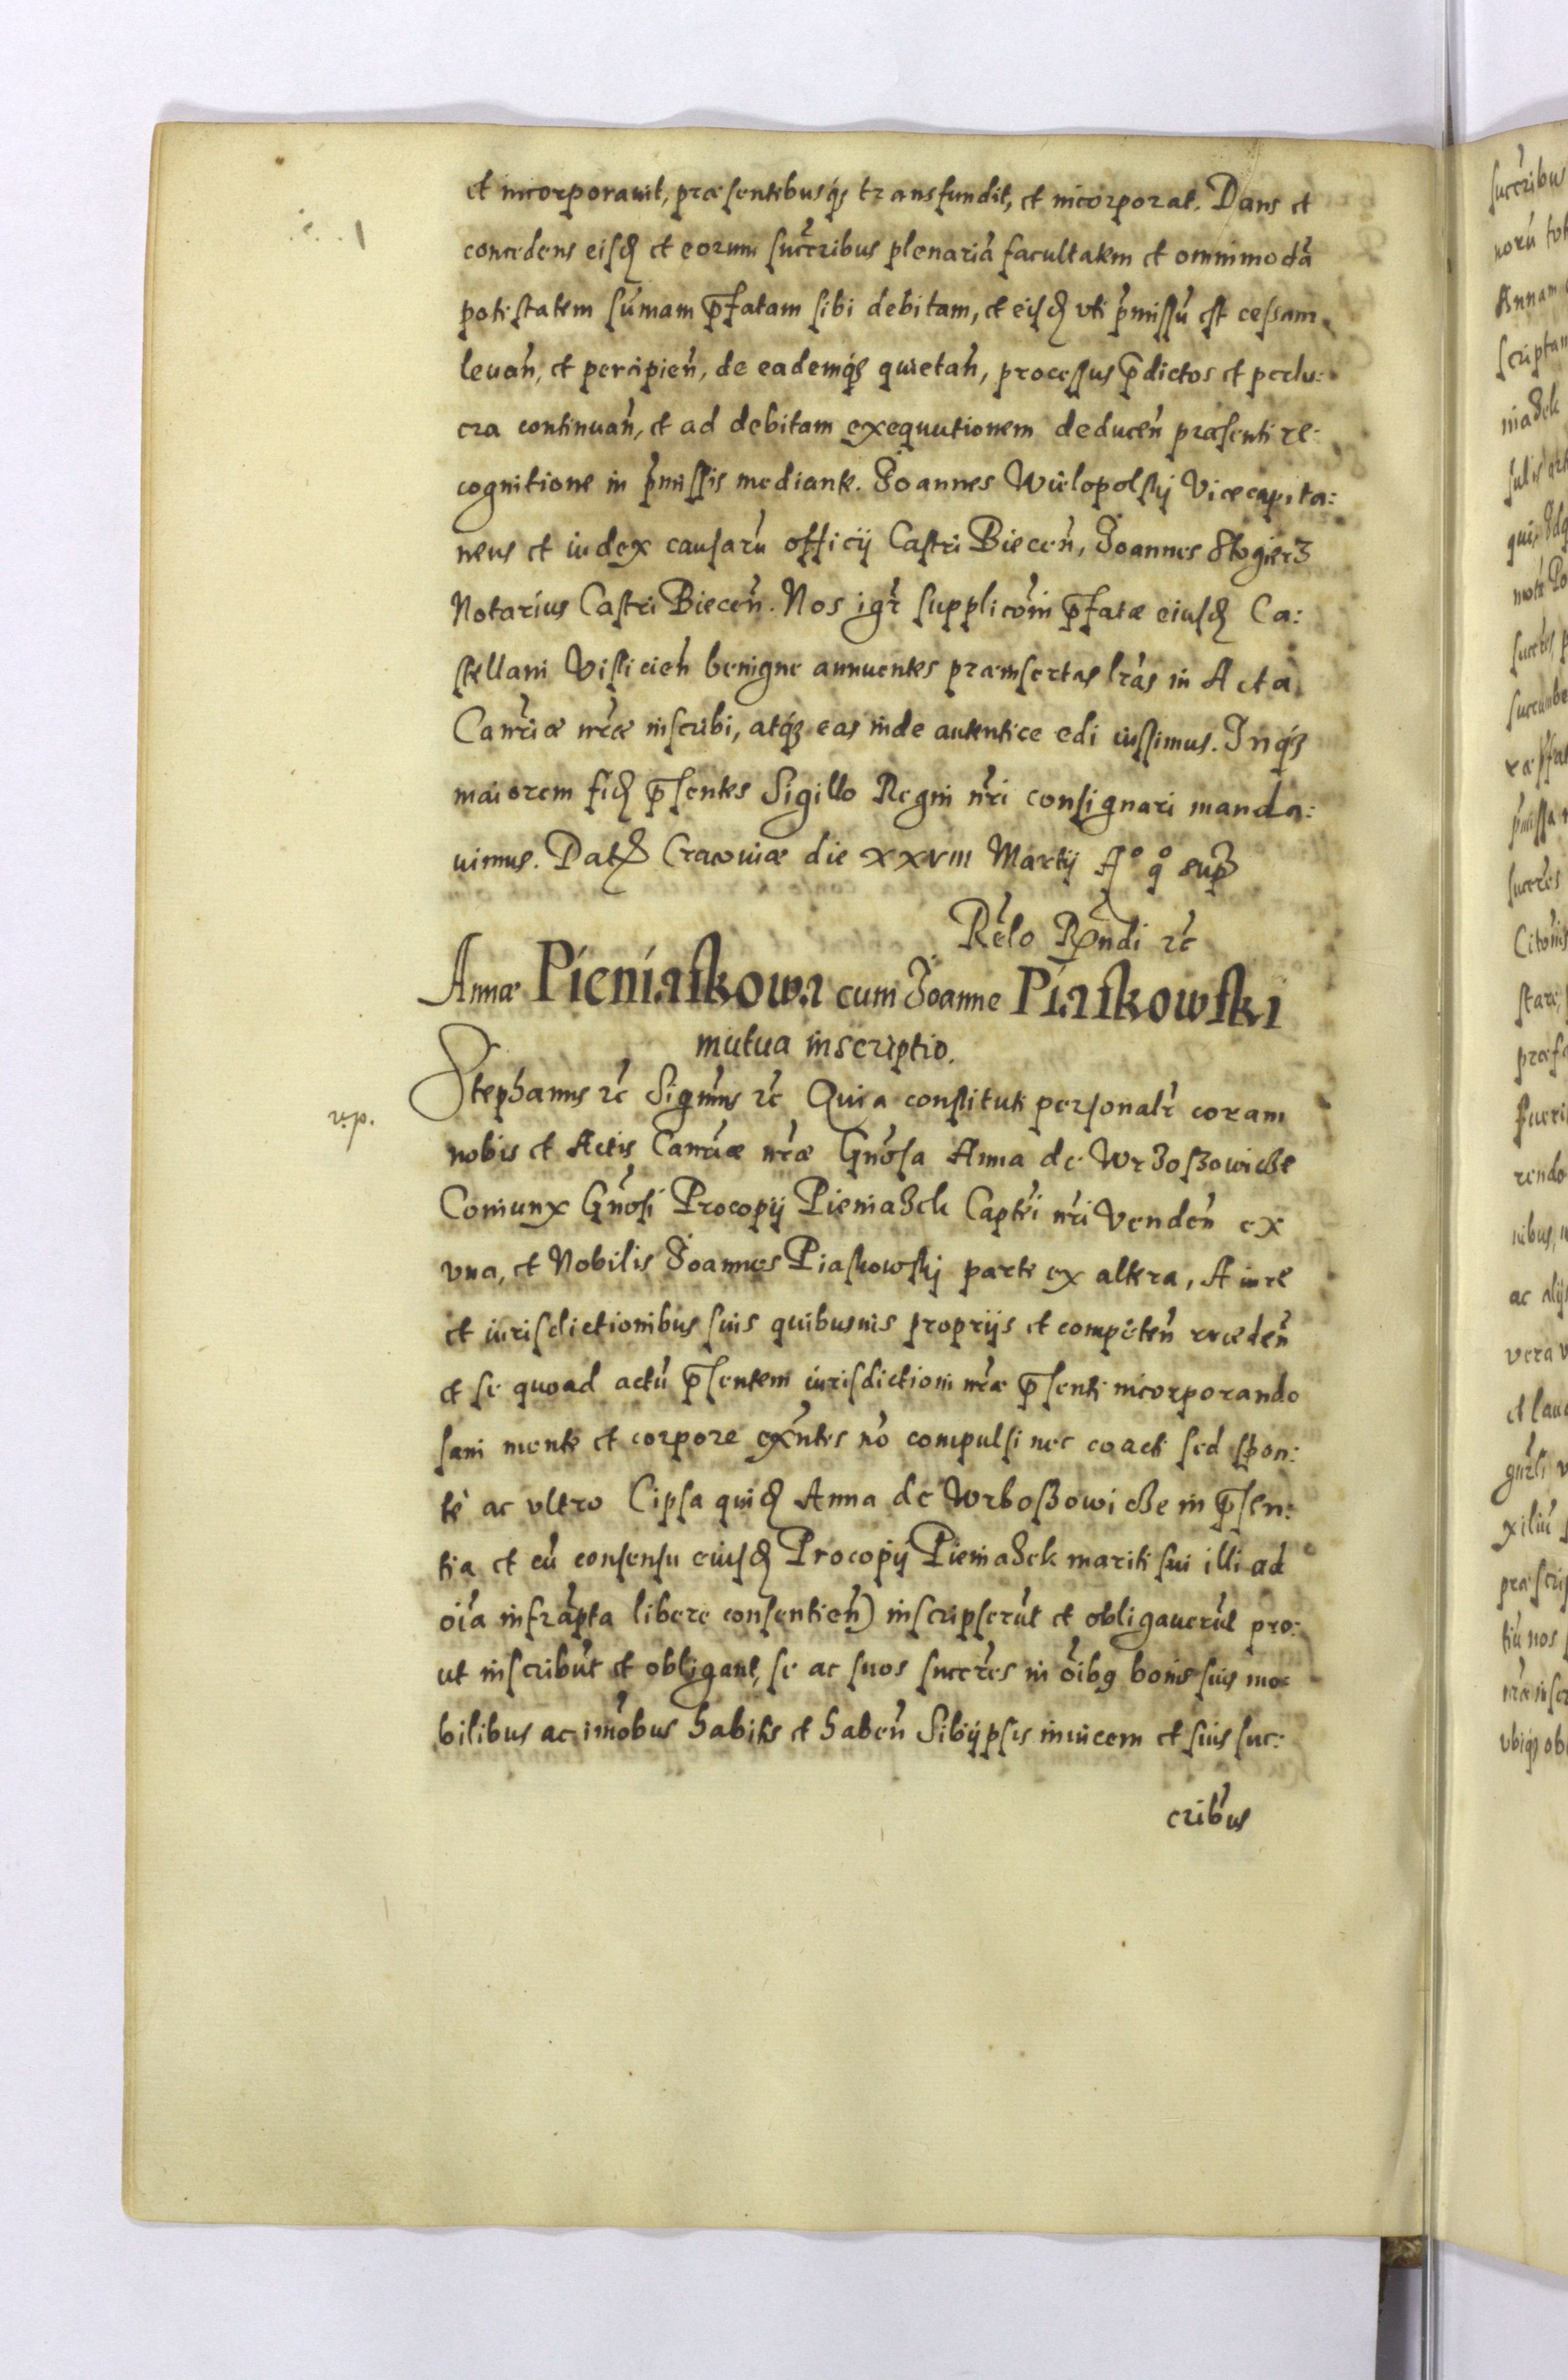 et incorporauit, præsentibusq́ꝫ transfundit, et incorporat. Dans et
concedens eisꝺ et eorum succ̃ribus plenariã facultatem et omnimodã
potestatem sũmam p̃fatam sibi debitam, et eisꝺ vti p̃missũ est cessam
leuañ, et percipień, de eademq́ꝫ quietań, processus p̃dictos et perlu:
cra continuań, et ad debitam exequutionem deduceń præsenti re:
cognitione in p̃missis mediante. Joannes Wielopolskj Vicecapita:
neus et iudex causarũ officij Castri Bieceń, Joannes Stogierz
Notarius Castri Bieceń. Nos igr̃ supplicõni p̃fatæ eiusꝺ Ca:
stellani Visliciеń benigne annuentes præinsertas lr̃as in Acta
Canr̃iæ nr̃æ inscribi, atq́ꝫ eas inde autentice edi iussimus. Inq́ꝫ
maiorem fiꝺ p̃sentes Sigillo Regni nr̃i consignari manda:
uimus. Datꝭ Cracouiæ die xxviii Martij Aº qº sup
Rẽlo Rp̃ndi rc̃
Annæ Pieniaskowa cum Joanne Piaskowski
mutua inscriptio.
Stephanus rc̃ Signm̃s rc̃ Quia constituti personalr̃ coram
rip.
nobis et Actis Canr̃iæ nr̃æ Gnõsa Anna de Wrzoszowicze
Coniunx Gnõsi Procopij Pieniazek Captr̃i nr̃i Vendeń ex
vna, et Nobilis Joannes Piaskowskj parte ex altera, A iure
et iurisdictionibus suis quibusuis proprijs et competeń recedeń
et se quoad actũ p̃sentem iurisdictioni nr̃æ p̃senti incorporando
sani mente et corpore exñtes nõ compulsi nec coacti sed spon:
te ac vltro (ipsa quiꝺ Anna de Wrboszowicze in p̃sen:
tia et cũ consensu eiusꝺ Procopij Pieniazek mariti sui illi ad
oĩa infrãpta libere consentień) inscripserũt et obligauerũt pro:
ut inscribũt et obligant, se ac suos succr̃es in oĩbꝫ bonis suis mo:
bilibus ac imõbus habitis et habeń Sibijpsis inuicem et suis suc:
cribus